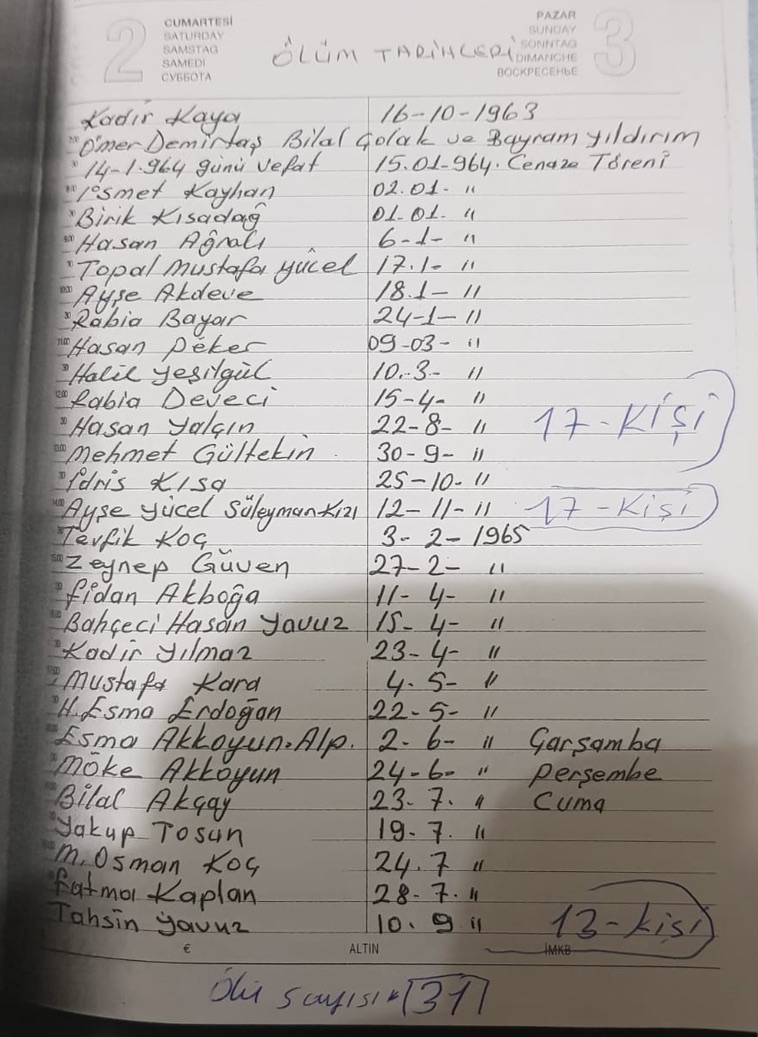 2 CUMARTESİ PAZAR 3
SATURDAY SUNDAY
SAMSTAG ÖLÜM TARİHLERİ SONNTAG
SAMEDI DIMANCHE
СУББОТА ВОСКРЕСЕНЬЕ
Kadir Kaya 16-10-1963
Ömer Demirtaş Bilal Çolak ve Bayram Yıldırım
14-1-964 günü vefat 15.01-964. Cenaze Töreni
İsmet Kayhan 02.01- "
Birik Kısadağ 01-01. "
Hasan Ağralı 6-1- "
Topal Mustafa Yücel 17.1- "
Ayşe Akdeve 18.1- "
Rabia Bayar 24-1- "
Hasan Peker 09-03- "
Halil Yeşilgül 10.-3- "
Rabia Deveci 15-4- "
Hasan Yalçın 22-8- " 17-Kişi
Mehmet Gültekin 30-9- "
İdris Kısa 25-10- "
Ayşe Yücel Süleyman Kızı 12-11-" 17-Kişi
Tevfik Koç 3-2-1965
Zeynep Güven 27-2- "
Fidan Akboğa 11-4- "
Bahçeci Hasan Yavuz 15-4- "
Kadir Yılmaz 23-4- "
Mustafa Kara 4-5- "
H.Esma Erdoğan 22-5- "
Esma Akkoyun.Alp. 2-6- " Çarşamba
Möke Akkoyun 24-6- " Perşembe
Bilal Akçay 23.7. " Cuma
Yakup Tosun 19.7. "
M.Osman Koç 24.7 "
Fatma Kaplan 28-7. "
Tahsin Yavuz 10.9 " 13-kişi
€ ALTIN İMKB
Ölü sayısı 31